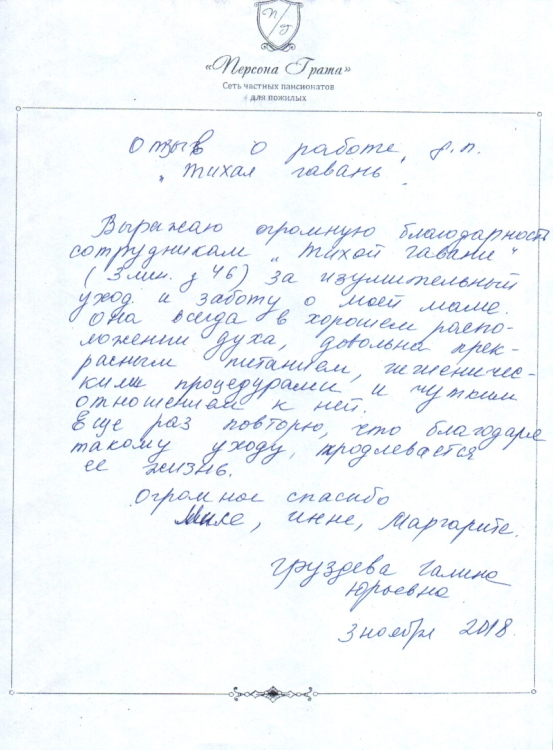 П Г
«Персона Грата»
Сеть частных пансионатов
для пожилых
Отзыв о работе
"Тихая гавань"
Выражаю огромную благодарность
сотрудникам "Тихой гавани"
( 46) за изумительный
уход и заботу о моей маме.
Она всегда в хорошем распо-
ложении духа, довольна прек-
расным питанием, гигиеничес-
кими процедурами и чутким
отношением к ней.
Еще раз повторю, что благодаря
такому уходу, продлевается
ее жизнь.
Огромное спасибо
Инне, Маргарите.
Груздева Галина
Юрьевна
3 ноября 2018.